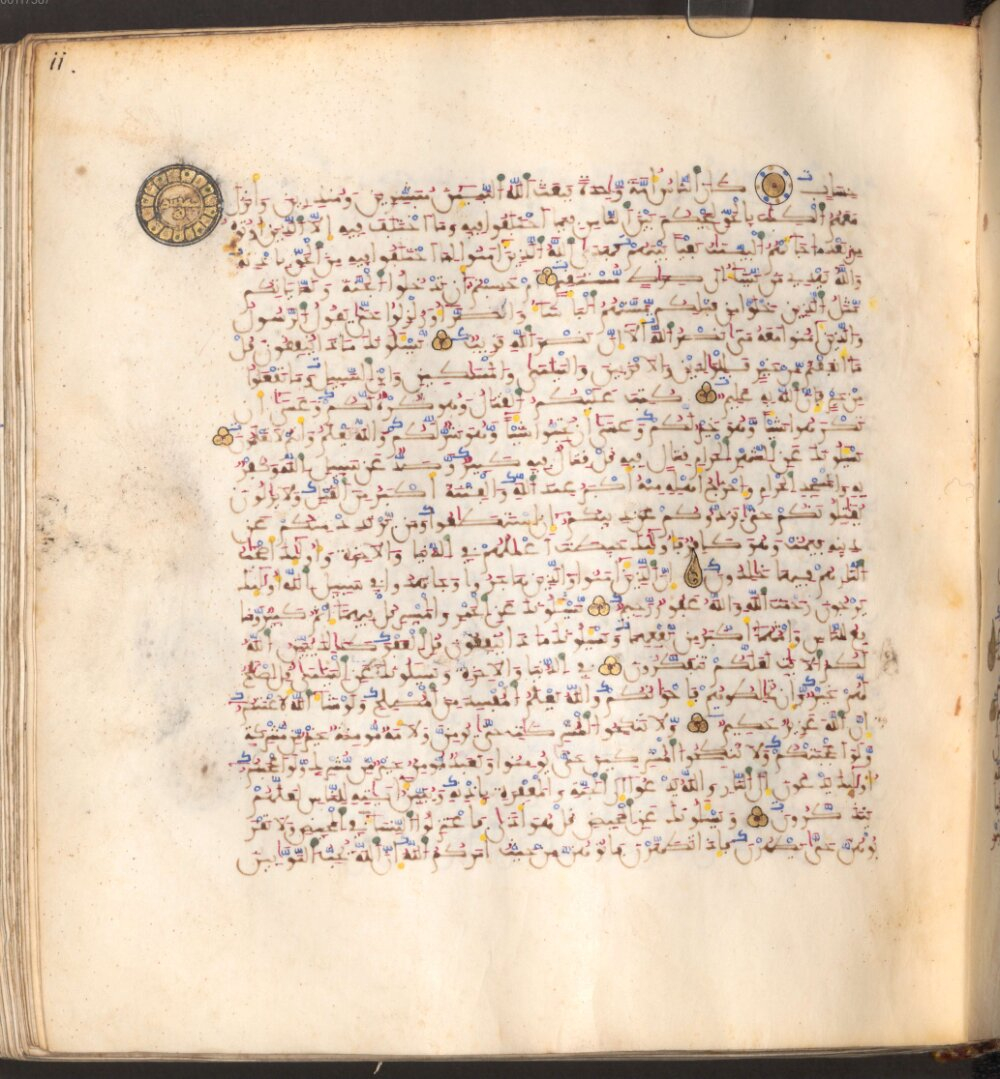 ii.
حساب كان الناس أمة وحدة فبعث الله النبيين مبشرين ومنذرين وأنزل
معهم الكتب بالحق ليحكم بين الناس فيما اختلفوا فيه وما اختلف فيه إلا الذين أوتوه
من بعد ما جاءتهم البينت بغيا بينهم فهدى الله الذين ءامنوا لما اختلفوا فيه من الحق بإذنه
والله يهدي من يشاء إلى صرط مستقيم أم حسبتم أن تدخلوا الجنة ولما يأتكم
مثل الذين خلوا من قبلكم مستهم البأساء والضراء وزلزلوا حتى يقول الرسول
والذين ءامنوا معه متى نصر الله ألا إن نصر الله قريب يسئلونك ماذا ينفقون قل
ما أنفقتم من خير فللولدين والأقربين واليتمى والمسكين وابن السبيل وما تفعلوا
من خير فإن الله به عليم كتب عليكم القتال وهو كره لكم وعسى أن
تكرهوا شيئا وهو خير لكم وعسى أن تحبوا شيئا وهو شر لكم والله يعلم وأنتم لا تعلمون
يسئلونك عن الشهر الحرام قتال فيه قل قتال فيه كبير وصد عن سبيل الله وكفر
به والمسجد الحرام وإخراج أهله منه أكبر عند الله والفتنة أكبر من القتل ولا يزالون
يقتلونكم حتى يردوكم عن دينكم إن استطعوا ومن يرتدد منكم عن
دينه فيمت وهو كافر فأولئك حبطت أعملهم في الدنيا والآخرة وأولئك أصحب
النار هم فيها خلدون إن الذين ءامنوا والذين هاجروا وجهدوا في سبيل الله أولئك
يرجون رحمت الله والله غفور رحيم يسئلونك عن الخمر والميسر قل فيهما إثم كبير ومنا
فع للناس وإثمهما أكبر من نفعهما ويسئلونك ماذا ينفقون قل العفو كذلك يبين الله
لكم الآيت لعلكم تتفكرون في الدنيا والآخرة ويسئلونك عن اليتمى قل إصلاح
لهم خير وإن تخالطوهم فإخوانكم والله يعلم المفسد من المصلح ولو شاء الله لأعنتكم
إن الله عزيز حكيم ولا تنكحوا المشركت حتى يومن ولأمة مومنة خير من مشركة
ولو أعجبتكم ولا تنكحوا المشركين حتى يومنوا ولعبد مومن خير من مشرك ولو أعجبكم
أولئك يدعون إلى النار والله يدعوا إلى الجنة والمغفرة بإذنه ويبين ءايته للناس لعلهم
يتذكرون ويسئلونك عن المحيض قل هو أذى فاعتزلوا النساء في المحيض ولا تقر
بوهن حتى يطهرن فإذا تطهرن فأتوهن من حيث أمركم الله إن الله يحب التوبين